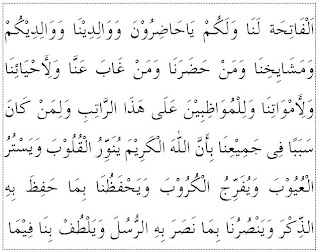 اَلْفَاتِحَة لَنَا وَلَكُمْ يَاحَاضِرُوْنَ وَوَالِدِيْنَا وَوَالِدِيْكُمْ
وَمَشَايِخِنَا وَمَنْ حَضَرَنَا وَمَنْ غَابَ عَنَّا وَلِأَحْيَائِنَا
وَلِأَمْوَاتِنَا وَلِلْمُوَاظِبِيْنَ عَلَى هَذَا الرَّاتِبِ وَلِمَنْ كَانَ
سَبَبًا فِى جَمِيعِنَا بِأَنَّ اللهَ الْكَرِيْمَ يُنَوِّرُ الْقُلُوْبَ وَيَسْتُرُ
الْعُيُوْبَ وَيُفَرِّجُ الْكُرُوْبَ وَيَحْفَظُنَا بِمَا حَفِظَ بِهِ
الذِّكْرَ وَيَنْصُرُنَا بِمَا نَصَرَ بِهِ الرُّسُلَ وَيَلْطُفُ بِنَا فِيْمَا